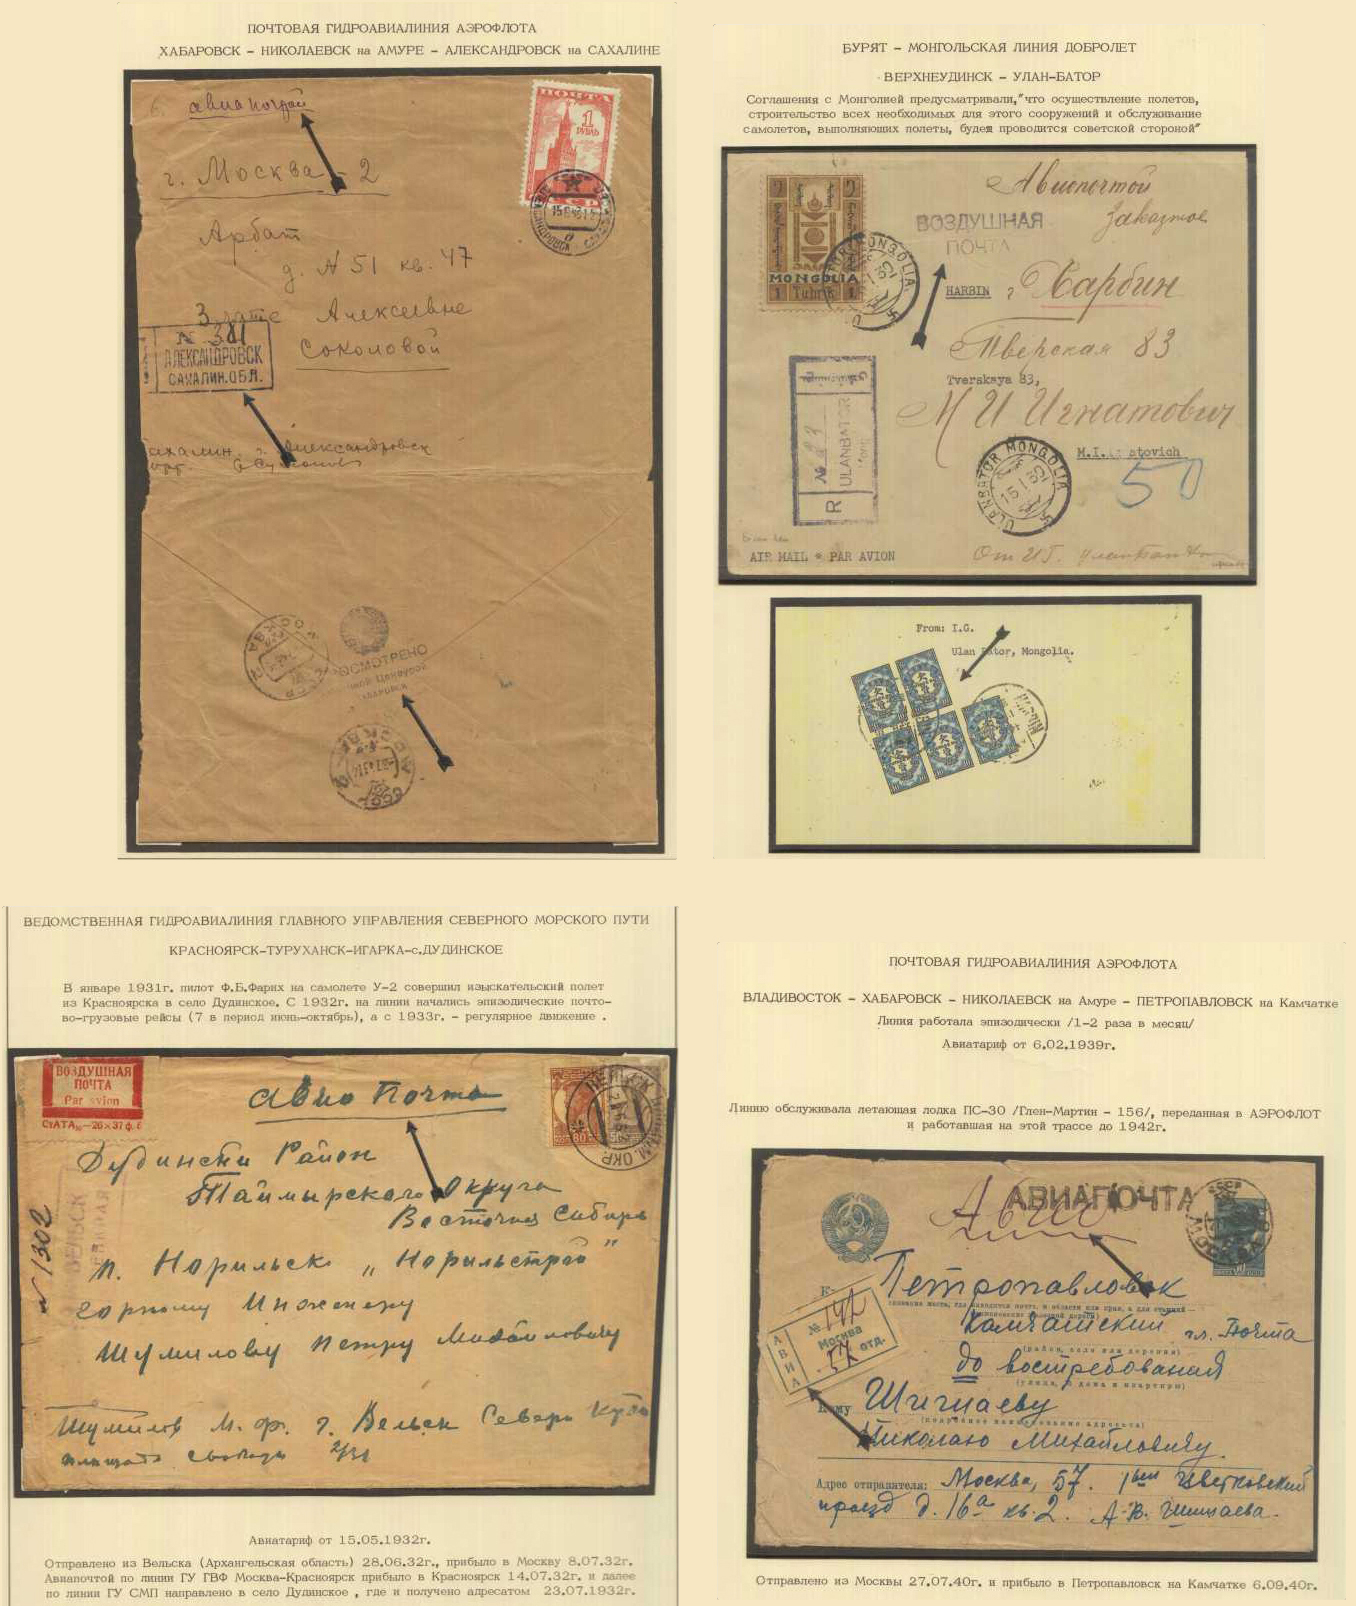 ПОЧТОВАЯ ГИДРОАВИАЛИНИЯ АЭРОФЛОТА
ХАБАРОВСК - НИКОЛАЕВСК на АМУРЕ - АЛЕКСАНДРОВСК на САХАЛИНЕ
авиапочтой
ПОЧТА
1
РУБЛЬ
г. Москва - 2
Арбат
д. N 51 кв. 47
Злате Алексеевне
Соколовой
№ 381
АЛЕКСАНДРОВСК
САХАЛИН.ОБЛ.
Александровск
МОСКВА
ПРОСМОТРЕНО
МОСКВА
СССР
БУРЯТ - МОНГОЛЬСКАЯ ЛИНИЯ ДОБРОЛЕТ
ВЕРХНЕУДИНСК - УЛАН-БАТОР
Соглашения с Монголией предусматривали,"что осуществление полетов,
строительство всех необходимых для этого сооружений и обслуживание
самолетов, выполняющих полеты, будет проводится советской стороной"
Авиопочтой
Заказное
ВОЗДУШНАЯ
ПОЧТА
MONGOLIA
HARBIN г Харбин
Тверская 83
Tverskaya 83,
М И Игнатович
R № 23 ULANBATOR
ULANBATOR MONGOLIA
50
AIR MAIL * PAR AVION
From: I.G.
Ulan Bator, Mongolia.
ВЕДОМСТВЕННАЯ ГИДРОАВИАЛИНИЯ ГЛАВНОГО УПРАВЛЕНИЯ СЕВЕРНОГО МОРСКОГО ПУТИ
КРАСНОЯРСК-ТУРУХАНСК-ИГАРКА-с.ДУДИНСКОЕ
В январе 1931г. пилот Ф.Б.Фарих на самолете У-2 совершил изыскательский полет
из Красноярска в село Дудинское. С 1932г. на линии начались эпизодические почто-
во-грузовые рейсы (7 в период июнь-октябрь), а с 1933г. - регулярное движение .
ВОЗДУШНАЯ
ПОЧТА
Par avion
Авио Почта
Дудински Район
Таймырского Округа
Восточная Сибирь
п. Норильск „Норильстрой"
горному Инженеру
Шумилову Петру Михайловичу
№ 1302
Шумилов М. Ф. г. Вельск
Авиатариф от 15.05.1932г.
Отправлено из Вельска (Архангельская область) 28.06.32г., прибыло в Москву 8.07.32г.
Авиапочтой по линии ГУ ГВФ Москва-Красноярск прибыло в Красноярск 14.07.32г. и далее
по линии ГУ СМП направлено в село Дудинское , где и получено адресатом 23.07.1932г.
ПОЧТОВАЯ ГИДРОАВИАЛИНИЯ АЭРОФЛОТА
ВЛАДИВОСТОК - ХАБАРОВСК - НИКОЛАЕВСК на Амуре - ПЕТРОПАВЛОВСК на Камчатке
Линия работала эпизодически /1-2 раза в месяц/
Авиатариф от 6.02.1939г.
Линию обслуживала летающая лодка ПС-30 /Глен-Мартин - 156/, переданная в АЭРОФЛОТ
и работавшая на этой трассе до 1942г.
АВИАПОЧТА
Авио
Петропавловск
Камчатский гл. Почта
до востребования
АВИА
Москва
отд.
Кому Шигнаеву
Николаю Михайловичу
Адрес отправителя: Москва, 57. 1ый Цветковский
проезд д. 16а кв. 2.
Отправлено из Москвы 27.07.40г. и прибыло в Петропавловск на Камчатке 6.09.40г.